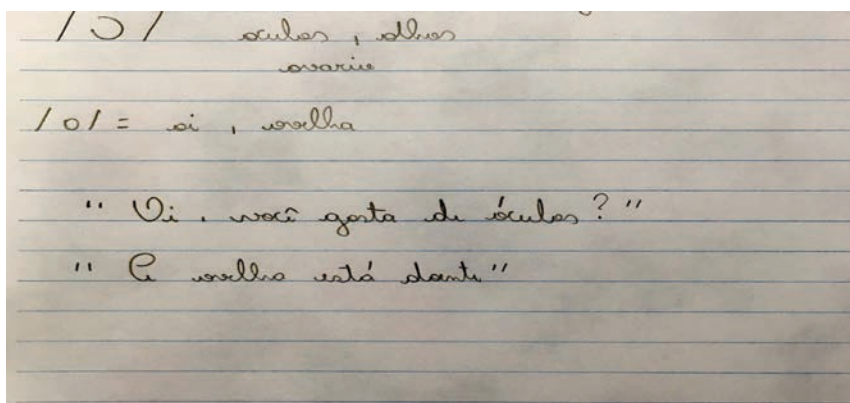 /Ɔ/ oculos, olhos
ovario
/o/ = oi, ovelha
" Oi, você gosta de óculos? "
" A ovelha está doente "